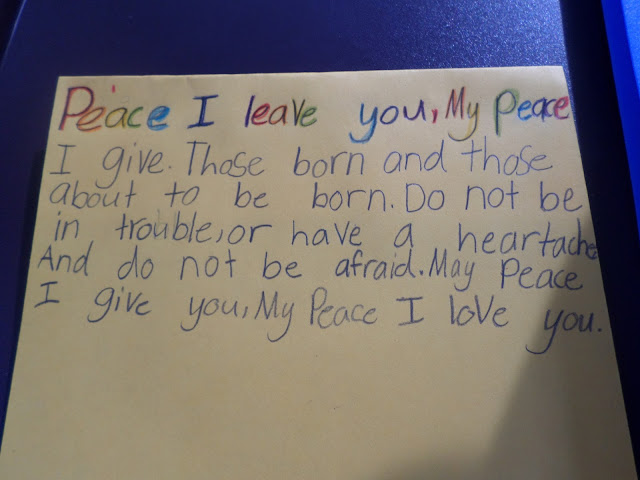 Peace I leave you, My Peace
I give. Those born and those
about to be born. Do not be
in trouble, or have a heartache
And do not be afraid. May Peace
I give you, My Peace I love you.